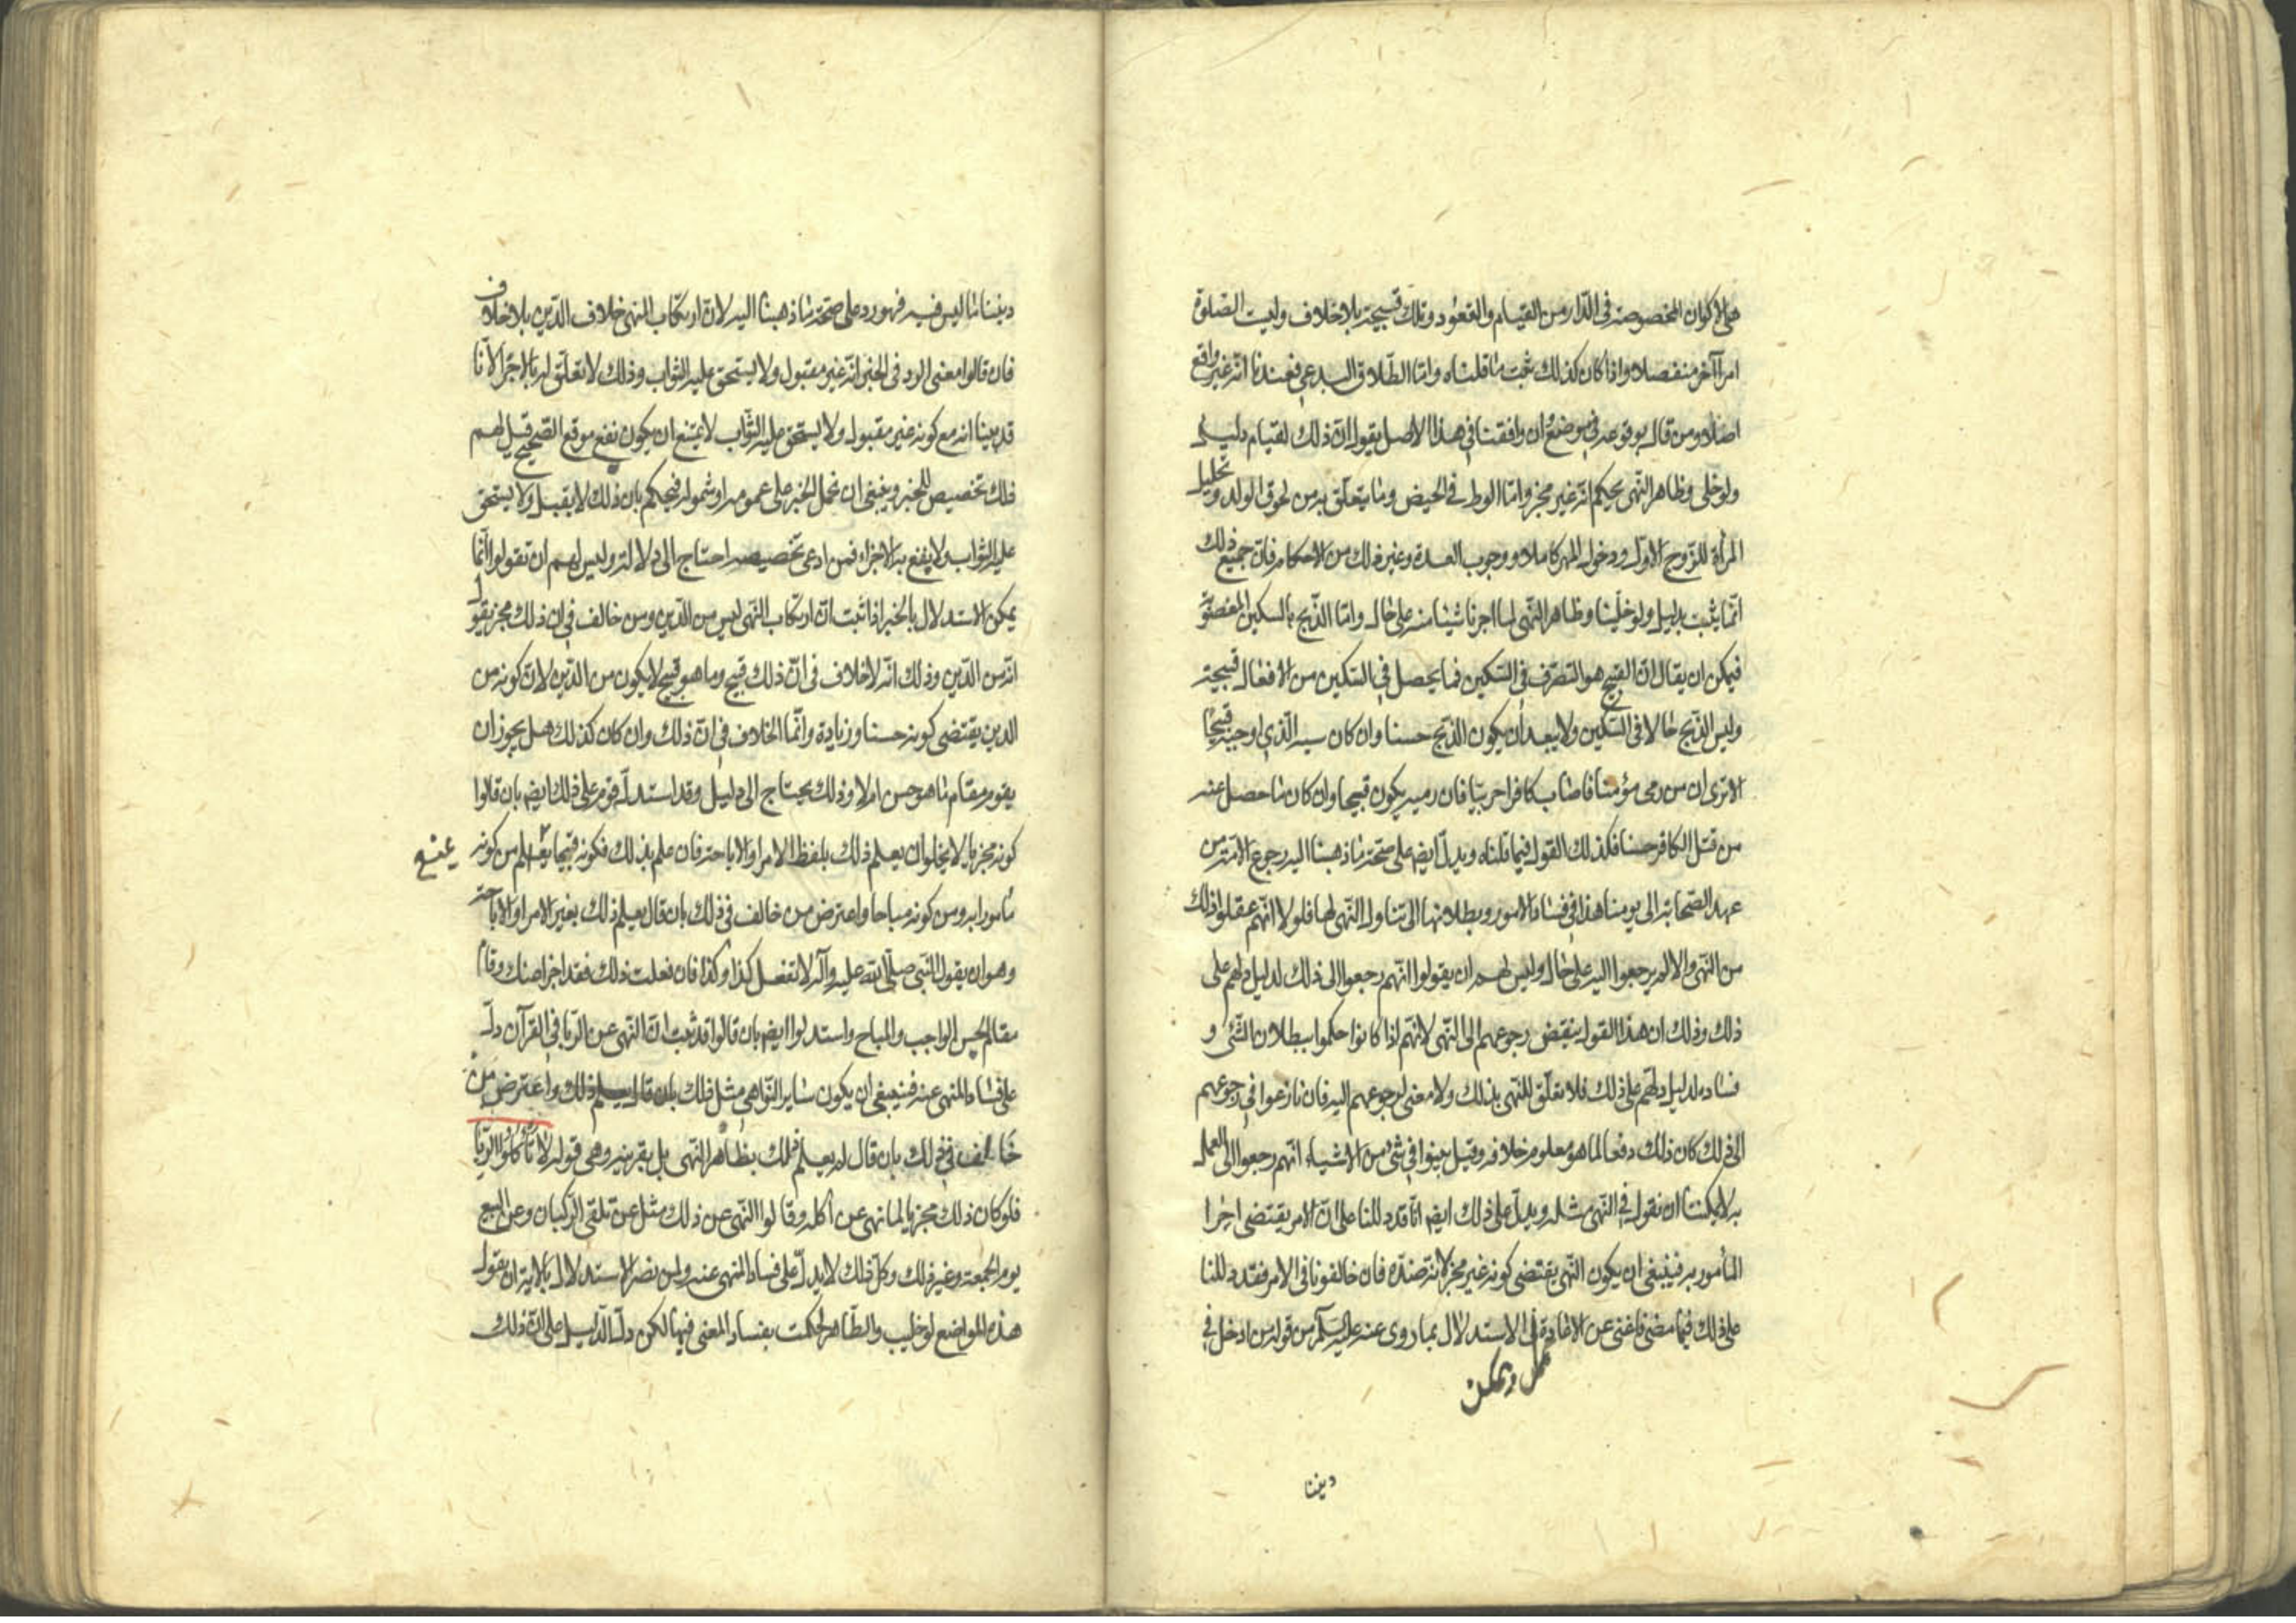 هي الاكوان المخصوصة في الدار من القيام والقعود وتلك قبيحة بلا خلاف وليت الصلوة
امرا آخر منفصلا واذا كان كذلك ثبت ما قلناه واما الطلاق البدعي فعندنا انه غير واقع
اصلا ومن قال بوقوعه في موضع ان وافقنا في هذا الاصل يقول ان ذلك لقيام دليل
ولو خلى وظاهر النهى يحكم انه غير مجز واما الوطى في الحيض وما يتعلق به من لحوق الولد وتحليل
المرأة للزوج الاول ودخول المهر كاملا ووجوب العدة وغير ذلك من الاحكام فان جميع ذلك
انما يثبت بدليل ولو خلينا وظاهر النهى لما اجزنا شيئا منه على حال واما الذبح بالسكين المغصوبة
فيمكن ان يقال ان القبيح هو التصرف في السكين فما يحصل في السكين من الافعال قبيحة
وليس الذبح حالا في السكين ولا يبعد ان يكون الذبح حسنا وان كان سببه الذي اوجبه قبيحا
الا ترى ان من رمى مؤمنا فاصاب كافرا حربيا فان رميه يكون قبيحا وان كان ما حصل عنه
من قتل الكافر حسنا فكذلك القول فيما قلناه ويدل ايضا على صحة ما ذهبنا اليه رجوع الامة من
عهد الصحابة الى يومنا هذا في فساد الامور وبطلانها الى تناول النهى لها فلولا انهم عقلوا ذلك
من النهى والا لم يرجعوا اليه على حال وليس لهم ان يقولوا انهم رجعوا الى ذلك لدليل دلهم على
ذلك وذلك ان هذا القول ينقض رجوعهم الى النهى لانهم اذا كانوا حكموا ببطلان الشئ و
فساده لدليل دلهم على ذلك فلا تعلق للنهى بذلك ولا معنى لرجوعهم اليه فان نازعوا في رجوعهم
الى ذلك كان ذلك دفعا لما هو معلوم خلافه وقيل بينوا في شئ من الاشياء انهم رجعوا الى العمل
به لا يمكننا ان نقول في النهى مثله ويدل على ذلك ايضا انا قد دللنا على ان الامر يقتضى اجزا
المأمور به فينبغى ان يكون النهى يقتضى كونه غير مجز لانه ضده فان خالفونا في الامر فقد دللنا
على ذلك فيما مضى فاغنى عن الاعادة في الاستدلال بما روى عنه عليه السلم من قوله من ادخل في
ويمكن
ديننا
ديننا ما ليس فيه فهو رد على صحة ما ذهبنا اليه لان ارتكاب المنهى خلاف الدين بلا خلاف
فان قالوا معنى الرد في الخبر انه غير مقبول ولا يستحق عليه الثواب وذلك لا تعلق له بالاجزا لانا
قد بينا انه مع كونه غير مقبول ولا يستحق عليه الثواب لا يمتنع ان يكون نفع موقع الصحيح قيل لهم
ذلك تخصيص للخبر وينبغى ان نحمل الخبر على عمومه او شموله فنحكم بان ذلك لا يقبل ولا يستحق
عليه الثواب ولا يقع به الاجزاء فمن ادعى تخصيصه احتاج الى دلالة وليس لهم ان تقولوا انما
يمكن الاستدلال بالخبر اذا ثبت ان ارتكاب النهى ليس من الدين ومن خالف في ان ذلك مجز يقول
انه من الدين وذلك انه لا خلاف في ان ذلك قبيح وما هو قبيح لا يكون من الدين لان كونه من
الدين يقتضى كونه حسنا وزيادة وانما الخلاف في ان ذلك وان كان كذلك هل يجوز ان
يقوم مقام ما هو حسن ام لا وذلك يحتاج الى دليل وقد استدل قوم على ذلك ايضا بان قالوا
كونه مجزيا لا يخلو ان يعلم ذلك بلفظ الامر او الاباحة فان علم بذلك فكونه قبيحا يعلم من كونه
يمنع
مامورا به ومن كونه مباحا واعترض من خالف في ذلك بان قال يعلم ذلك بغير الامر او الاباحة
وهو ان يقول النبي صلى الله عليه وآله لا تفعل كذا وكذا فان فعلت ذلك فقد اجزا عنك وقام
مقام الحسن الواجب والمباح واستدلوا ايضا بان قالوا قد ثبت ان النهى عن الربا في القرآن دل
على فساد المنهى عنه فينبغى ان يكون ساير النواهى مثل ذلك بان قال يعلم ذلك واعترض من
خالف في ذلك بان قال لم يعلم ذلك بظاهر النهى بل بقرينة وهى قوله لا تاكلوا الربا
فلو كان ذلك مجزيا لما نهى عن اكله وقالوا النهى عن ذلك مثل عن تلقى الركبان وعن البيع
يوم الجمعة وغير ذلك وكل ذلك لا يدل على فساد المنهى عنه ولمن نصر الاستدلال بالاية ان يقول
هذه المواضع لو خليت والظاهر لحكمت بفساد المعنى فيها لكن دل الدليل على ان ذلك